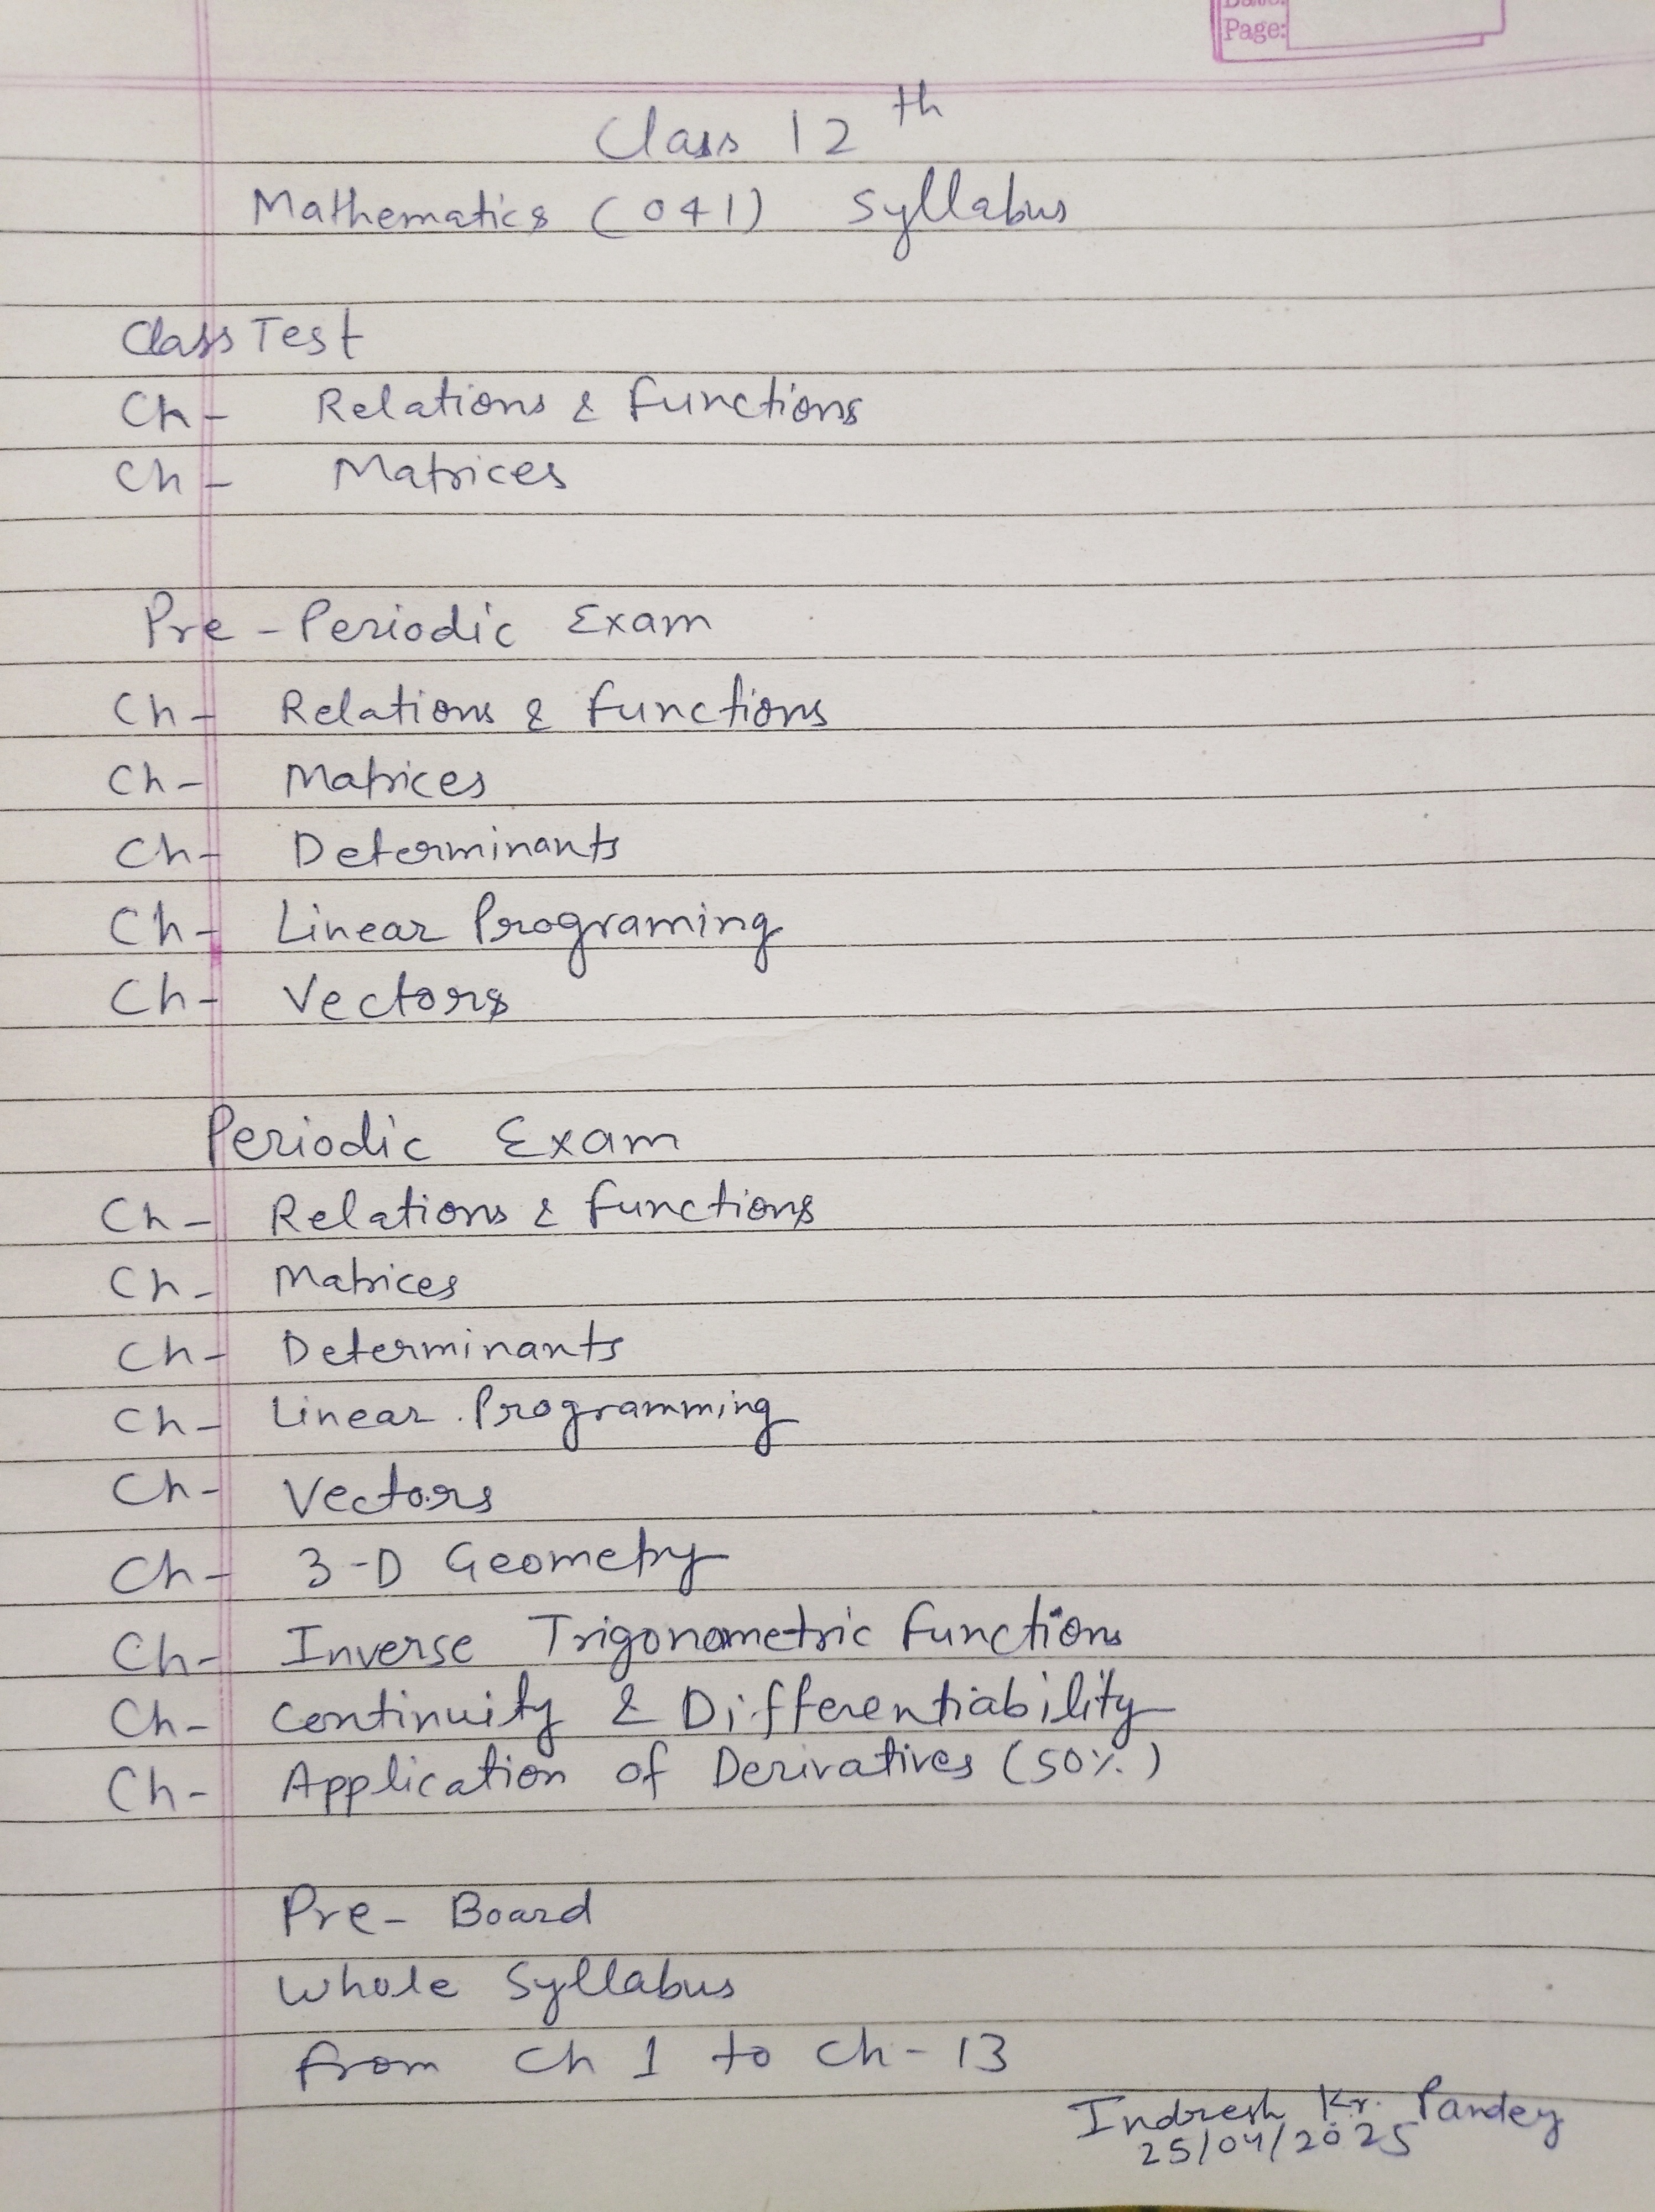 Date:
Page:
Class 12th
Mathematics (041) Syllabus
Class Test
Ch- Relations & Functions
Ch- Matrices
Pre-Periodic Exam
Ch- Relations & Functions
Ch- Matrices
Ch- Determinants
Ch- Linear Programing
Ch- Vectors
Periodic Exam
Ch- Relations & Functions
Ch- Matrices
Ch- Determinants
Ch- Linear Programming
Ch- Vectors
Ch- 3-D Geometry
Ch- Inverse Trigonometric Functions
Ch- Continuity & Differentiability
Ch- Application of Derivatives (50%)
Pre-Board
Whole Syllabus
from Ch 1 to Ch-13
Indresh Kr. Pandey
25/04/2025